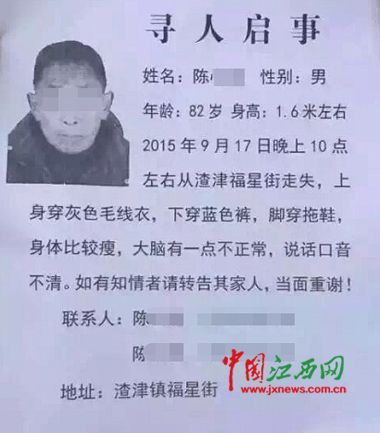 寻人启事
姓名：陈 性别：男
年龄：82岁 身高：1.6米左右
2015年9月17日晚上10点
左右从渣津福星街走失，上
身穿灰色毛线衣，下穿蓝色裤，脚穿拖鞋，
身体比较瘦，大脑有一点不正常，说话口音
不清。如有知情者请转告其家人，当面重谢！
联系人：陈
陈
地址：渣津镇福星街
中国江西网
www.jxnews.com.cn